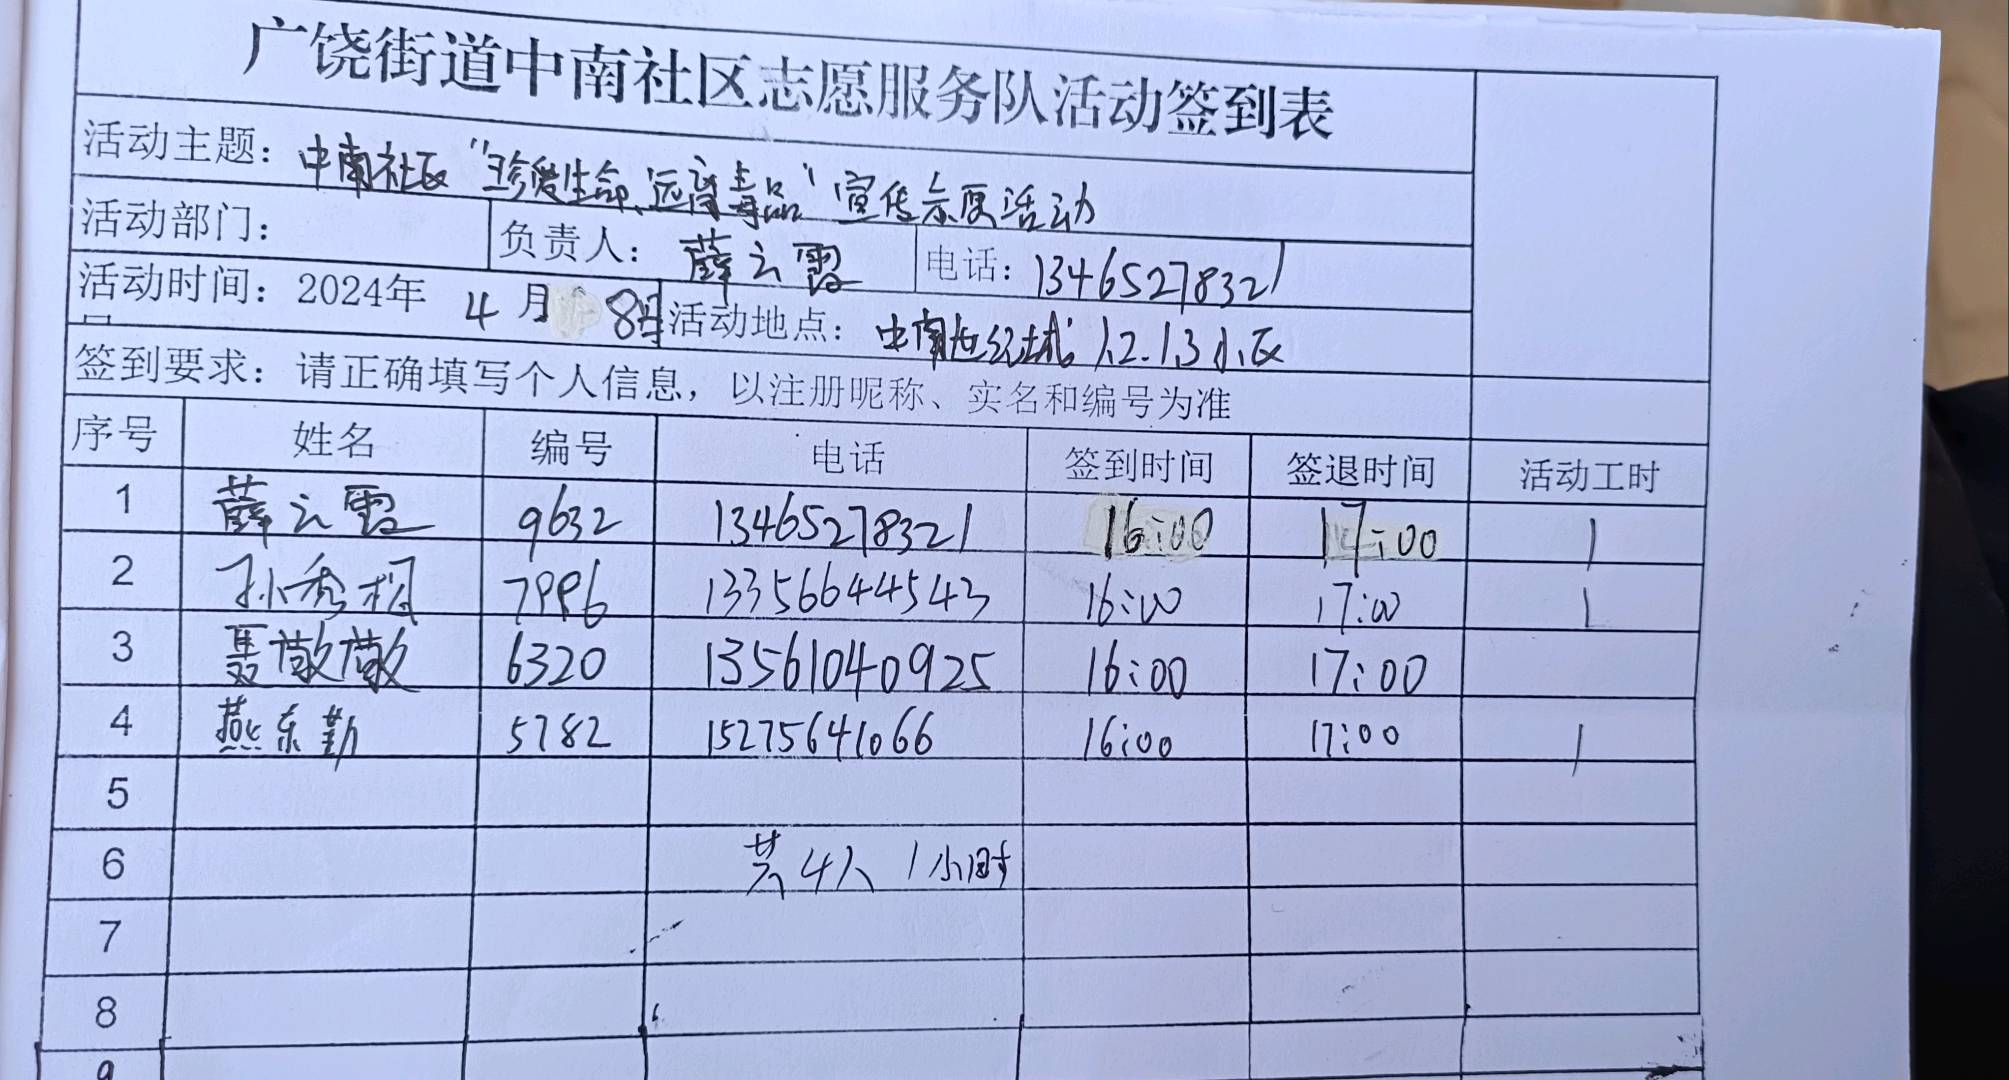 广饶街道中南社区志愿服务队活动签到表
活动主题：中南社区“珍爱生命、远离毒品”宣传示夏活动
活动部门： 负责人：薛云霞 电话：13465278321
活动时间：2024年 4月 8日 活动地点：中南世纪城1.2.1.3小区
签到要求：请正确填写个人信息，以注册昵称、实名和编号为准
序号 姓名 编号 电话 签到时间 签退时间 活动工时
1 薛云霞 9632 13465278321 16:00 17:00 1
2 孙秀梅 7996 13356644543 16:00 17:00 1
3 聂敬敬 6320 13561040925 16:00 17:00
4 燕东勤 5782 15275641066 16:00 17:00 1
5
6 共4人 1小时
7
8
9